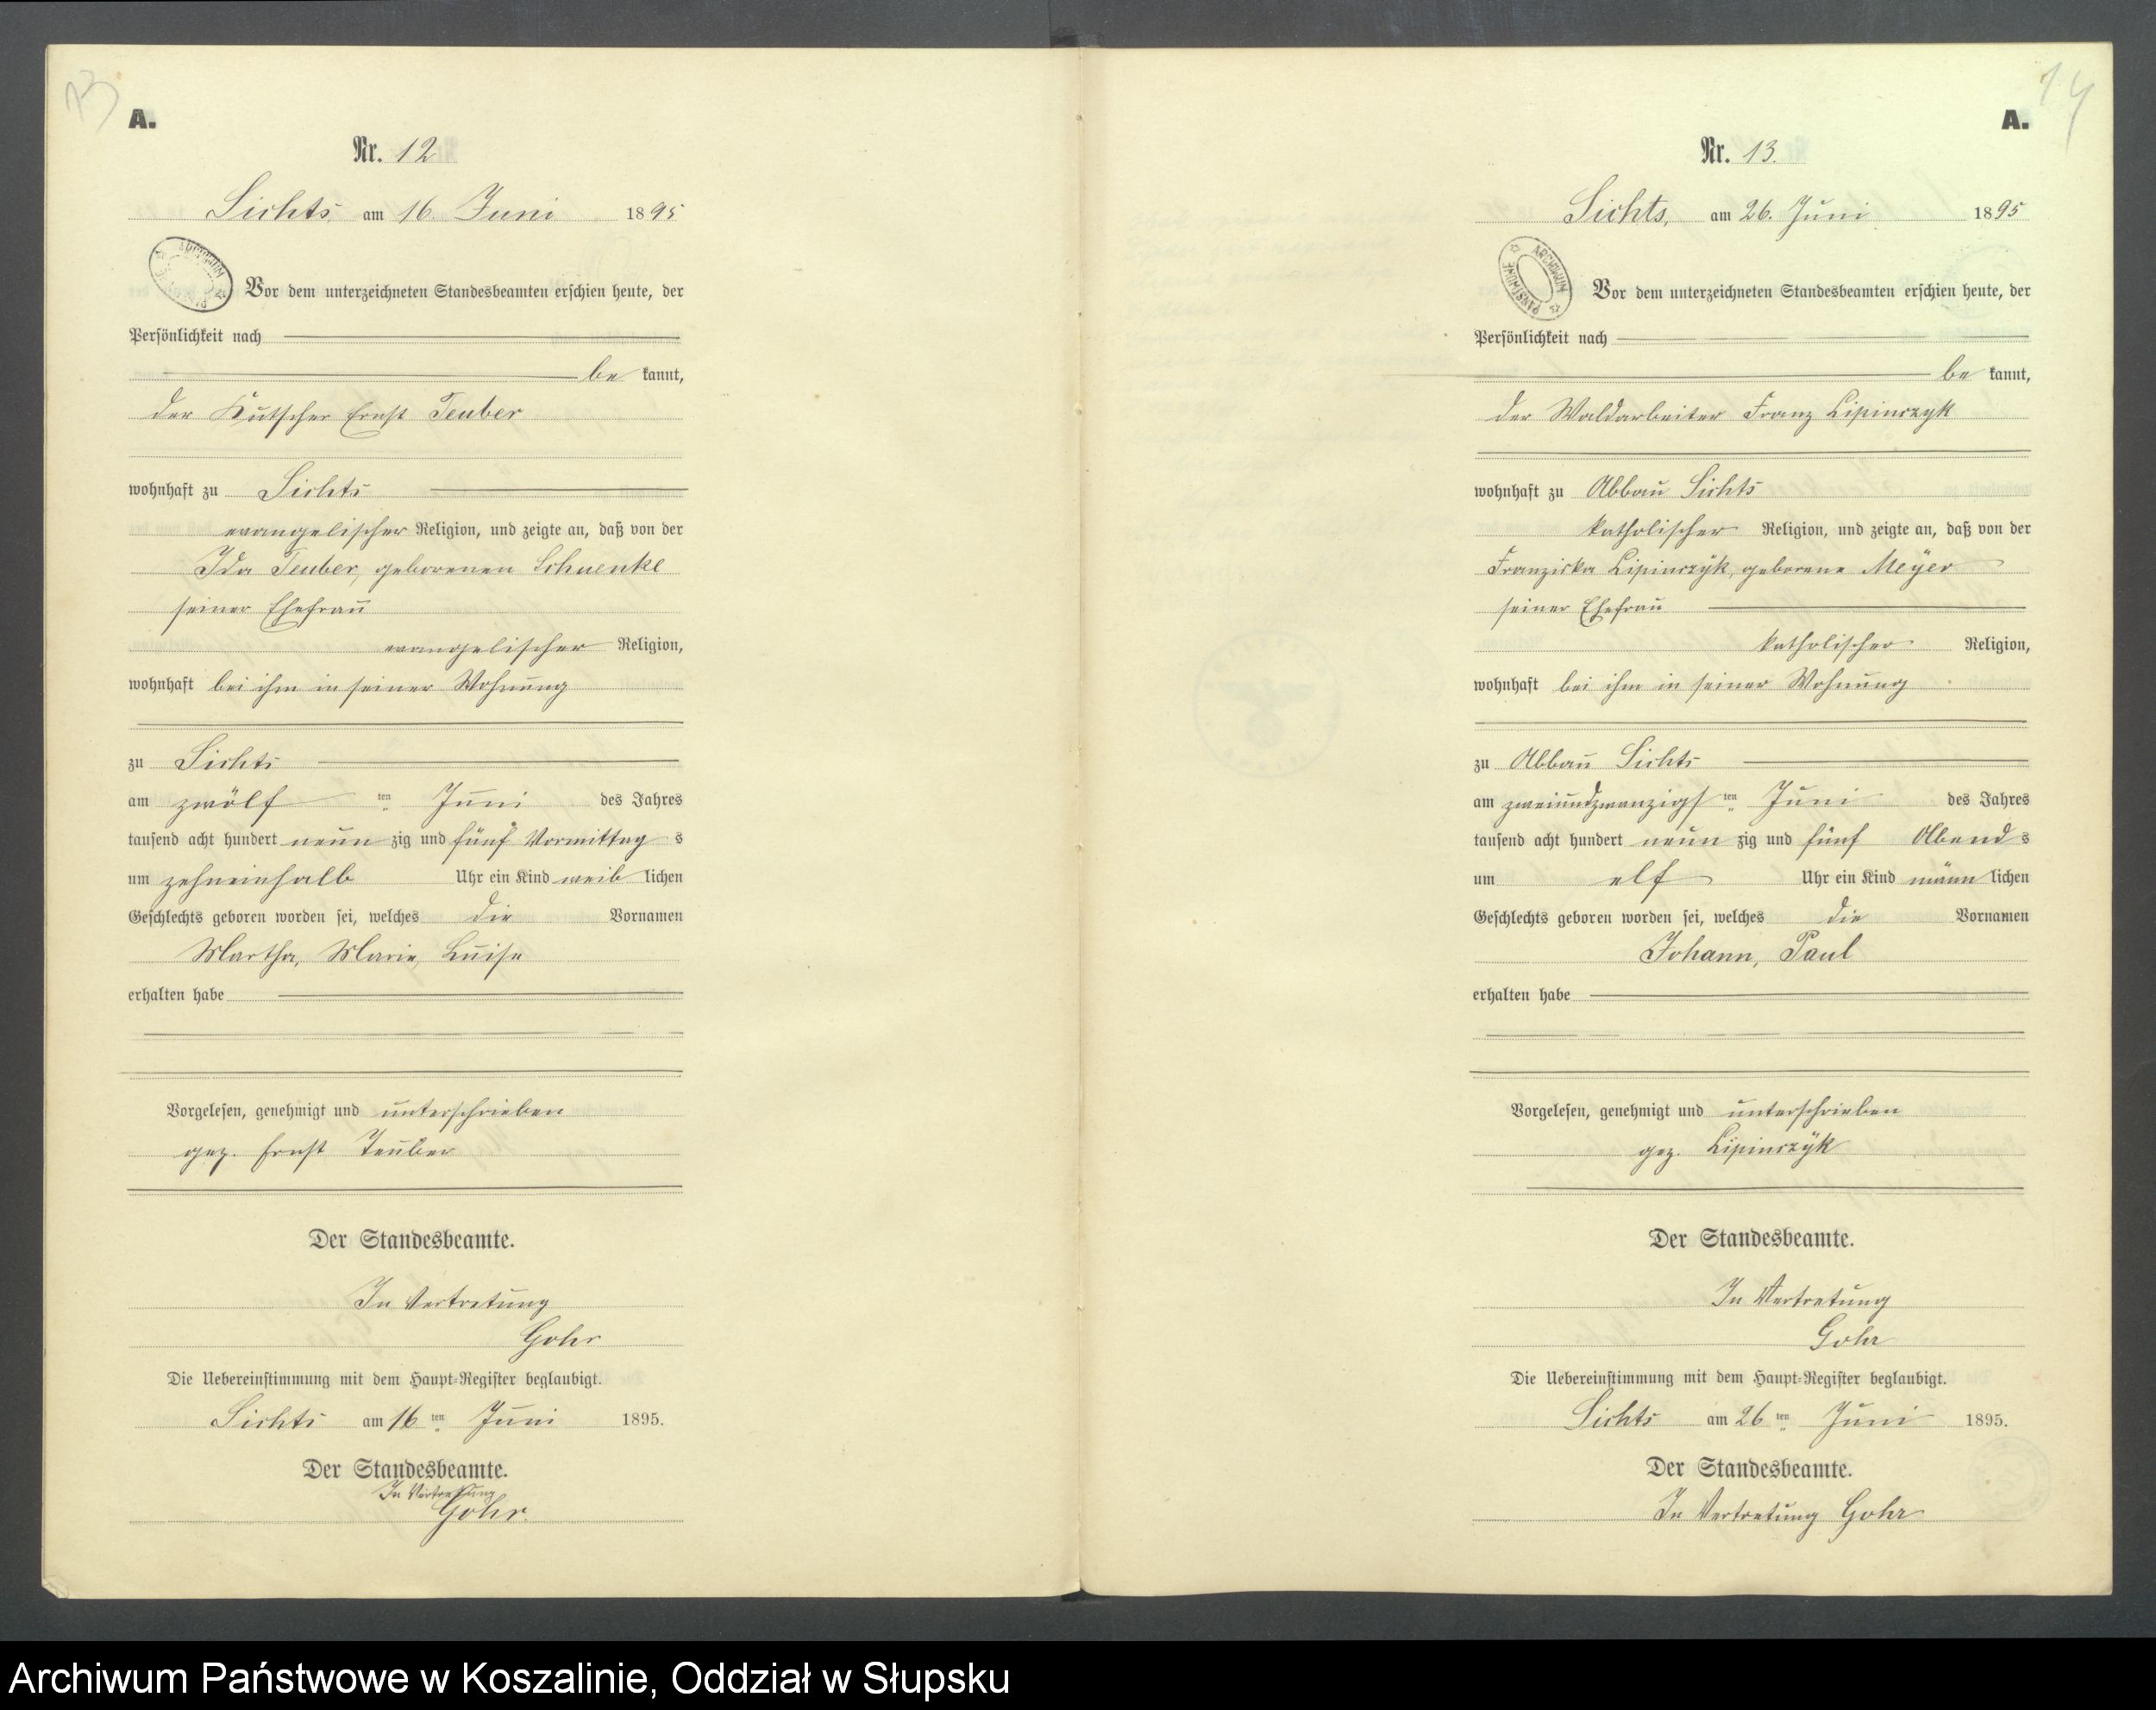 13
A.
Nr. 12
Sichts, am 16. Juni 1895
Vor dem unterzeichneten Standesbeamten erschien heute, der
Persönlichkeit nach
be kannt,
der Kutscher Ernst Teuber
wohnhaft zu Sichts
evangelischer Religion, und zeigte an, daß von der
Ida Teuber, geborenen Schuenke
seiner Ehefrau
evangelischer Religion,
wohnhaft bei ihm in seiner Wohnung
zu Sichts
am zwölf ten Juni des Jahres
tausend acht hundert neun zig und fünf Vormittag s
um zehneinhalb Uhr ein Kind weib lichen
Geschlechts geboren worden sei, welches die Vornamen
Martha, Marie, Luise
erhalten habe
Vorgelesen, genehmigt und unterschrieben
gez. Ernst Teuber
Der Standesbeamte.
In Vertretung
Gohr
Die Uebereinstimmung mit dem Haupt-Register beglaubigt.
Sichts am 16 ten Juni 1895.
Der Standesbeamte.
In Vertretung
Gohr.
14
A.
Nr. 13.
Sichts, am 26. Juni 1895
ARCHIWUM PAŃSTWOWE
Vor dem unterzeichneten Standesbeamten erschien heute, der
Persönlichkeit nach
be kannt,
der Waldarbeiter Franz Lipinczyk
wohnhaft zu Abbau Sichts
katholischer Religion, und zeigte an, daß von der
Franziska Lipinczyk, geborene Meyer
seiner Ehefrau
katholischer Religion,
wohnhaft bei ihm in seiner Wohnung
zu Abbau Sichts
am zweiundzwanzigs ten Juni des Jahres
tausend acht hundert neun zig und fünf Abend s
um elf Uhr ein Kind männ lichen
Geschlechts geboren worden sei, welches die Vornamen
Johann, Paul
erhalten habe
Vorgelesen, genehmigt und unterschrieben
gez. Lipinczyk
Der Standesbeamte.
In Vertretung
Gohr
Die Uebereinstimmung mit dem Haupt-Register beglaubigt.
Sichts am 26 ten Juni 1895.
Der Standesbeamte.
In Vertretung Gohr
Archiwum Państwowe w Koszalinie, Oddział w Słupsku